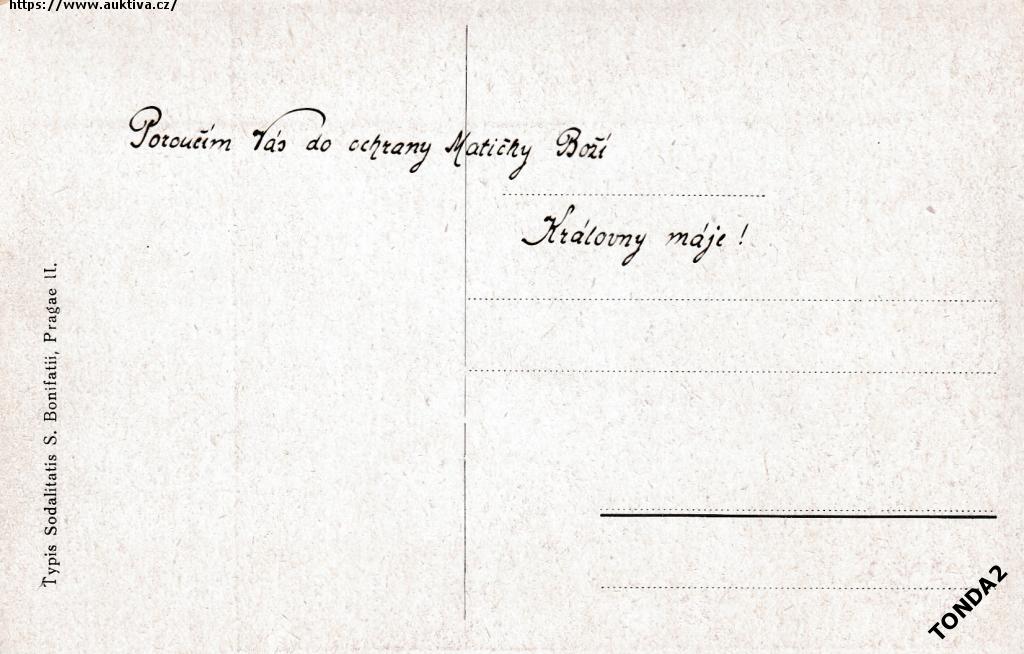 https://www.auktiva.cz/
Poroučím Vás do ochrany Matičky Boží
Královny máje!
Typis Sodalitatis S. Bonifatii, Pragae II.
TONDA2